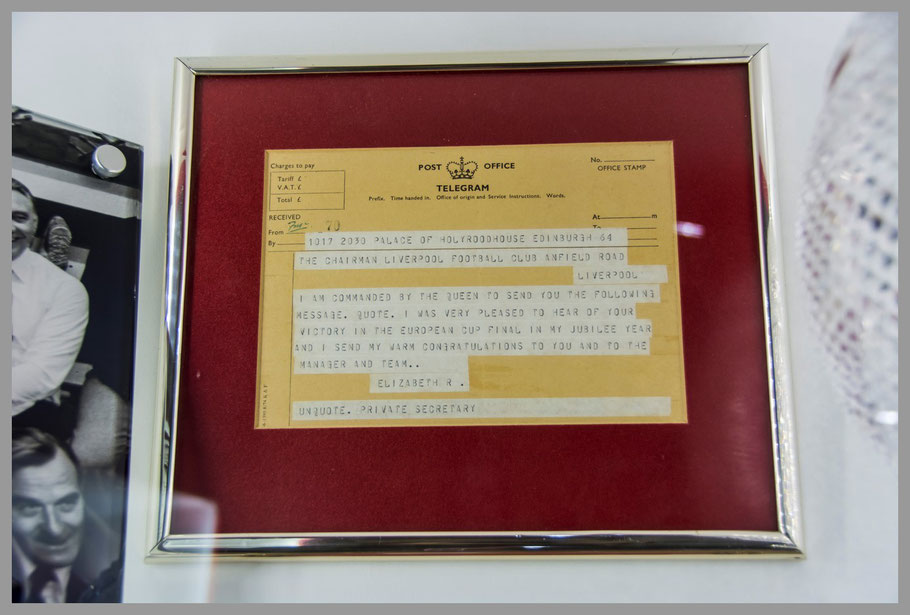 Charges to pay
Tariff £
V.A.T. £
Total £
POST OFFICE
TELEGRAM
Prefix. Time handed in. Office of origin and Service Instructions. Words.
No.
OFFICE STAMP
RECEIVED
From 70
By
At m
To
1017 2030 PALACE OF HOLYROODHOUSE EDINBURGH 64
THE CHAIRMAN LIVERPOOL FOOTBALL CLUB ANFIELD ROAD
LIVERPOOL
I AM COMMANDED BY THE QUEEN TO SEND YOU THE FOLLOWING
MESSAGE. QUOTE. I WAS VERY PLEASED TO HEAR OF YOUR
VICTORY IN THE EUROPEAN CUP FINAL IN MY JUBILEE YEAR
AND I SEND MY WARM CONGRATULATIONS TO YOU AND TO THE
MANAGER AND TEAM..
ELIZABETH R .
UNQUOTE. PRIVATE SECRETARY